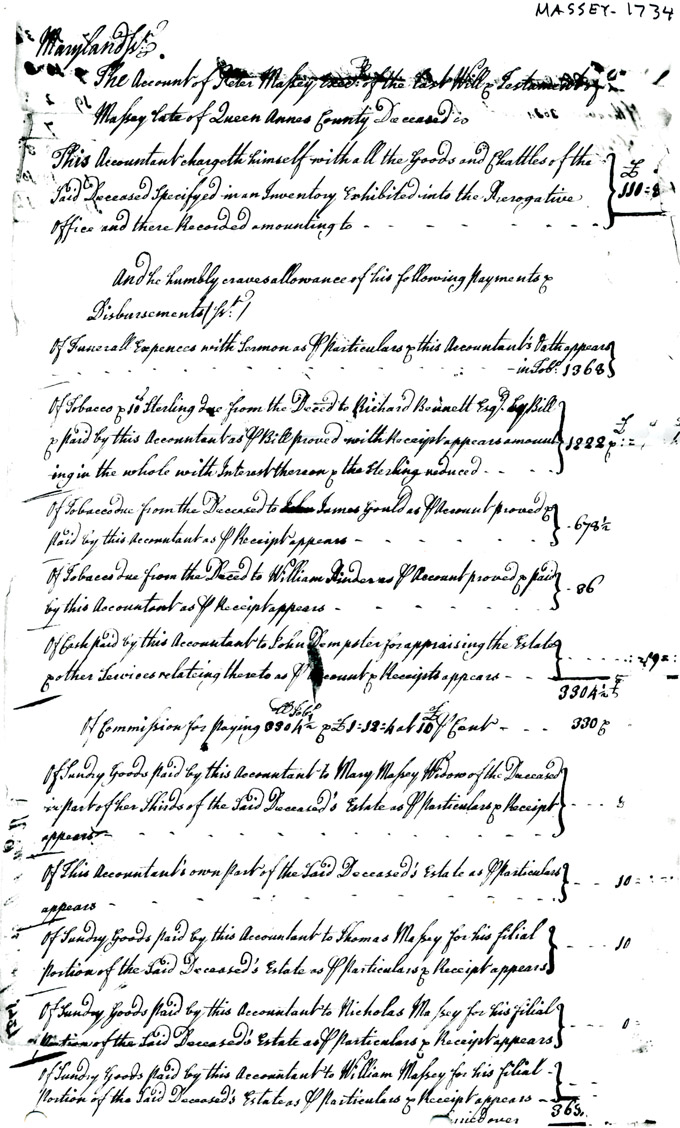 MASSEY - 1734
Maryland Ss.
The Account of Peter Massey Exec. of the Last Will & Testament of
Massey late of Queen Annes County Deceased is
This Accountant chargeth himself with all the Goods and Chattles of the
Said Deceased Specifyed in an Inventory Exhibited into the Prerogative
Office and there Recorded amounting to - - - - - - £ 110=8
And he humbly craves allowance of his following Payments &
Disbursements (Vizt.)
Of Funerall Expences with Sermon as ⅌ Particulars & this Accountant's Oath appears
- - - - - - - - - in Tobo. 1368
Of Tobacco & 10s Sterling due from the Deced to Richard Bennett Esqr. by Bill
& Paid by this Accountant as ⅌ Bill proved with Receipt appears amount
ing in the whole with Interest thereon & the Sterling reduced - - 1222 & £
Of Tobacco due from the Deceased to James Gould as ⅌ Account proved &
Paid by this Accountant as ⅌ Receipt appears - - - - 678½
Of Tobacco due from the Deced to William as ⅌ Account proved & Paid
by this Accountant as ⅌ Receipt appears - - - - 36
Of Cash Paid by this Accountant to John Dempster for appraising the Estate
& other Services relating thereto as ⅌ Account & Receipts appears - -
3304½
Of Commission for Paying 3304½ & £1=12=4 at 10 ⅌ Cent - - - 330 &
Of Sundry Goods Paid by this Accountant to Mary Massey Widow of the Deceased
in part of her Thirds of the Said Deceased's Estate as ⅌ Particulars & Receipt - - - 8
appears - - - - - - -
Of This Accountant's own Part of the Said Deceased's Estate as ⅌ Particulars - - - 10
appears - - - - - - -
Of Sundry Goods Paid by this Accountant to Thomas Massey for his filial
Portion of the Said Deceased's Estate as ⅌ Particulars & Receipt appears - - - 10
Of Sundry Goods Paid by this Accountant to Nicholas Massey for his filial
Portion of the Said Deceased's Estate as ⅌ Particulars & Receipt appears
Of Sundry Goods Paid by this Accountant to William Massey for his filial
Portion of the Said Deceased's Estate as ⅌ Particulars & Receipt appears
over